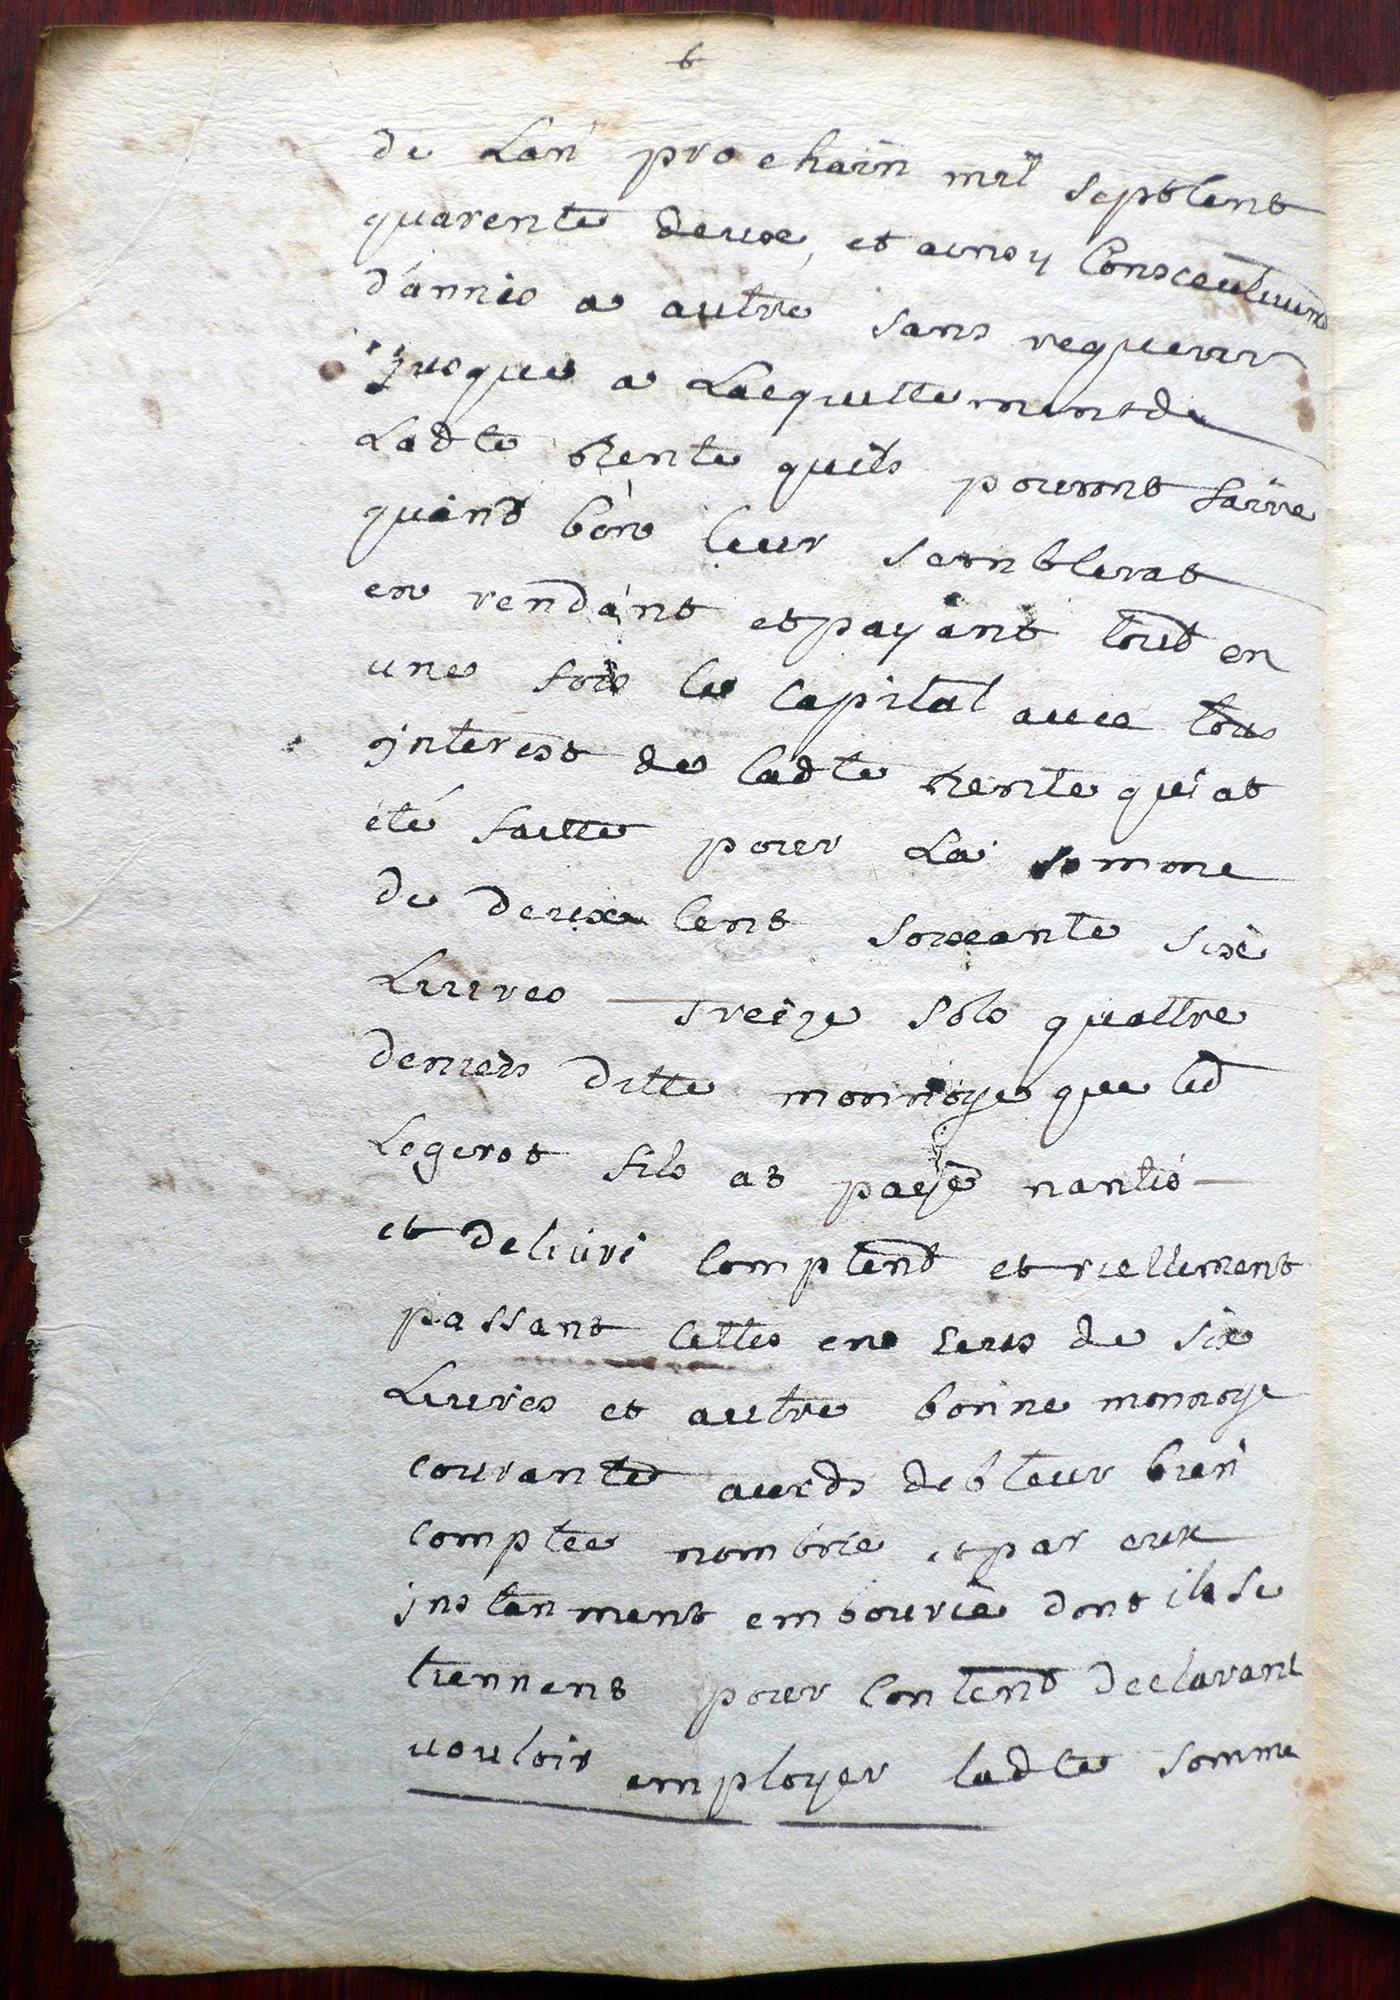 6
de Lan prochain mil septcent
quarente deux, et ainsy Conseceutivement
d'année a autre sans requerir
Jusque a Lacquittement de
Ladte Rente quils pouront faire
quand bon leur semblerat
en rendant et payant tout en
une fois le capital avec tous
jnterest de ladte Rente qui at
été faitte pour La somme
de deuxe Cent soixeante sixe
Livres Treize sols quattre
deniers ditte monnoye que led
Legerot fils at payé nantis
et delivré Comptent et réellement
passant Cettes en Ecus de six
Livres et autre bonne monnoye
courante auxds debteur bien
comptée nombrée et par eux
jnstenment embourcé dont ils se
tiennent pour Content declarant
vouloir employer ladte somme